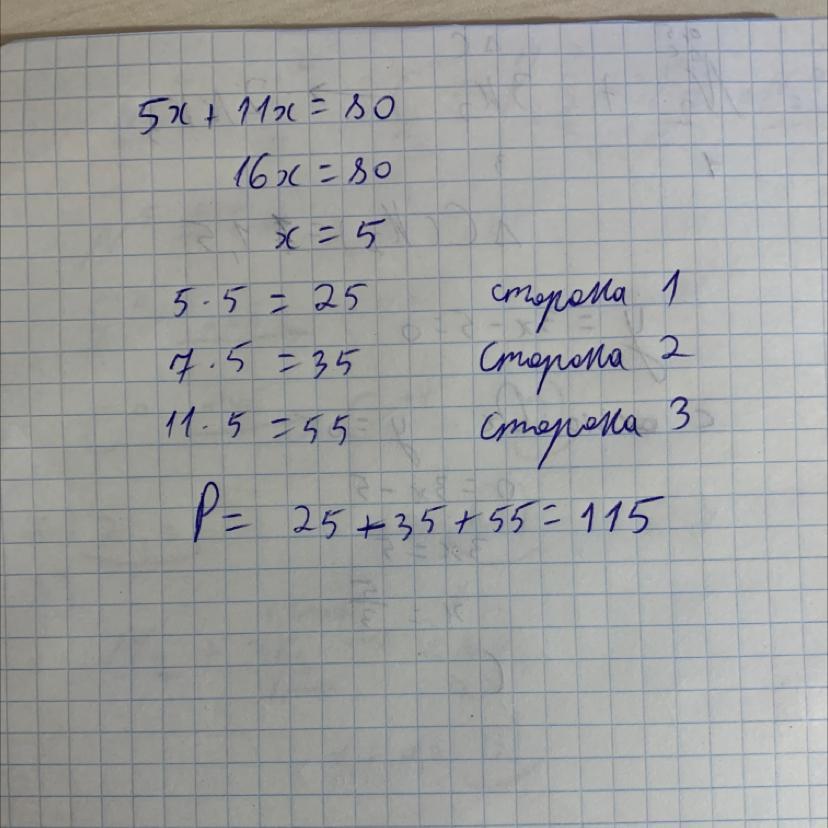 5x + 11x = 80
16x = 80
x = 5
5 · 5 = 25 сторона 1
7 · 5 = 35 сторона 2
11 · 5 = 55 сторона 3
P = 25 + 35 + 55 = 115